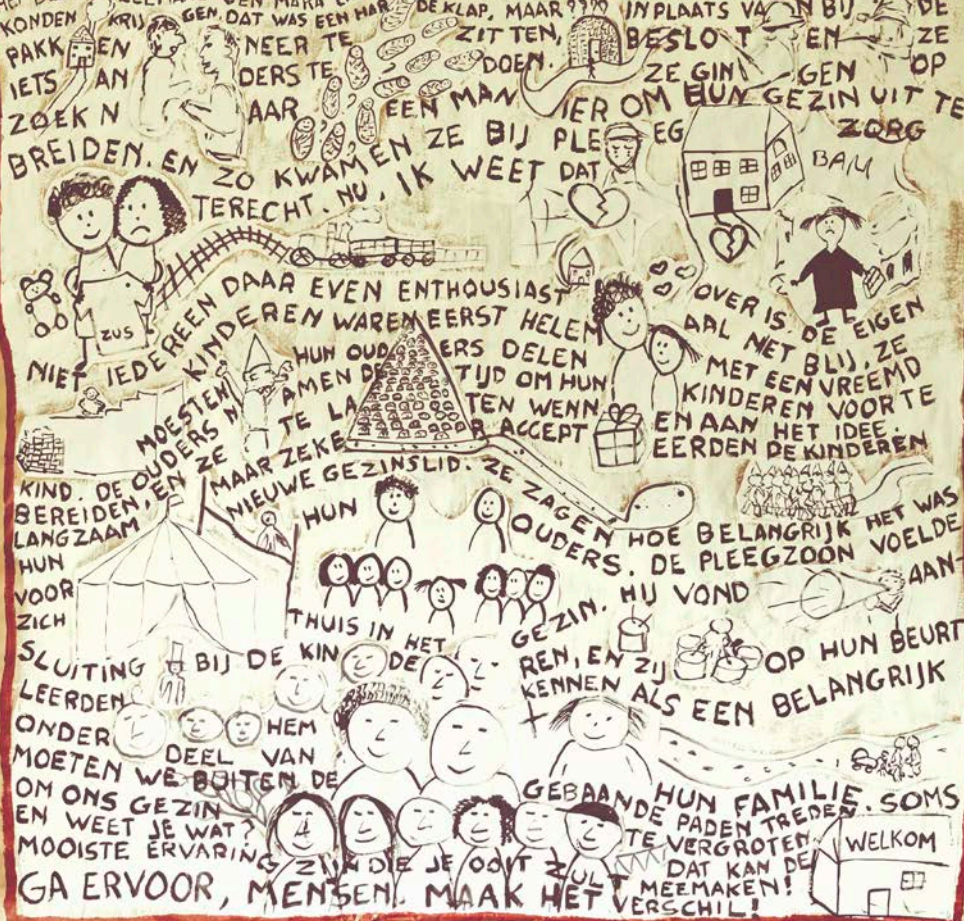 KONDEN KRIJ GEN. DAT WAS EEN HAR DE KLAP, MAAR???? IN PLAATS VA N BIJ DE
PAKK EN NEER TE ZITTEN, BESLO T EN ZE
IETS AN DERS TE DOEN. ZE GIN GEN OP
ZOEK N AAR EEN MAN IER OM HUN GEZIN UIT TE
BREIDEN. EN ZO KWAMEN ZE BIJ PLE EG ZORG
BAM
TERECHT. NU, IK WEET DAT
ZUS
NIET IEDEREEN DAAR EVEN ENTHOUSIAST OVER IS. DE EIGEN
KINDEREN WAREN EERST HELEM AAL NIET BLIJ, ZE
MOESTEN HUN OUD ERS DELEN MET EEN VREEMD
KIND. DE OUDERS N AMEN DE TIJD OM HUN KINDEREN VOOR TE
BEREIDEN, EN ZE TE LA TEN WENN EN AAN HET IDEE.
LANGZAAM MAAR ZEKE R ACCEPT EERDEN DE KINDEREN
HUN NIEUWE GEZINSLID. ZE ZAGEN HOE BELANGRIJK HET WAS
VOOR HUN OUDERS. DE PLEEGZOON VOELDE
ZICH THUIS IN HET GEZIN. HIJ VOND AAN-
SLUITING BIJ DE KIN DE REN, EN ZIJ OP HUN BEURT
LEERDEN HEM KENNEN ALS EEN BELANGRIJK
ONDER DEEL VAN HUN FAMILIE. SOMS
MOETEN WE BUITEN DE GEBAANDE PADEN TREDEN
OM ONS GEZIN TE VERGROTEN.
WELKOM
EN WEET JE WAT? DAT KAN DE
MOOISTE ERVARING ZIJN DIE JE OOIT ZULT MEEMAKEN!
GA ERVOOR, MENSEN. MAAK HET VERSCHIL!